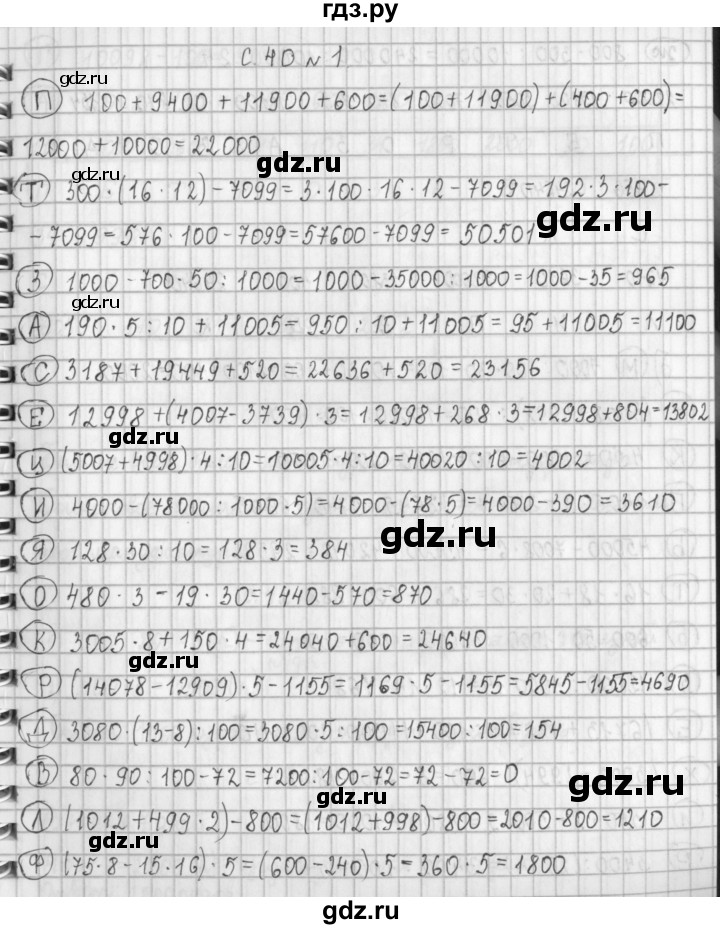 гдз.ру
С. 40 № 1
gdz.ru
П 100 + 9400 + 11900 + 600 = (100 + 11900) + (400 + 600) =
12000 + 10000 = 22000
gdz.ru
gdz.ru
Т 300 · (16 · 12) - 7099 = 3 · 100 · 16 · 12 - 7099 = 192 · 3 · 100 -
- 7099 = 576 · 100 - 7099 = 57600 - 7099 = 50501
gdz.ru
З 1000 - 700 · 50 : 1000 = 1000 - 35000 : 1000 = 1000 - 35 = 965
gdz.ru
А 190 · 5 : 10 + 11005 = 950 : 10 + 11005 = 95 + 11005 = 11100
С 3187 + 19449 + 520 = 22636 + 520 = 23156
gdz.ru
Е 12998 + (4007 - 3739) · 3 = 12998 + 268 · 3 = 12998 + 804 = 13802
gdz.ru
Ц (5007 + 4998) · 4 : 10 = 10005 · 4 : 10 = 40020 : 10 = 4002
И 4000 - (78000 : 1000 · 5) = 4000 - (78 · 5) = 4000 - 390 = 3610
gdz.ru
Я 128 · 30 : 10 = 128 · 3 = 384
О 480 · 3 - 19 · 30 = 1440 - 570 = 870
К 3005 · 8 + 150 · 4 = 24040 + 600 = 24640
gdz.ru
Р (14078 - 12909) · 5 - 1155 = 1169 · 5 - 1155 = 5845 - 1155 = 4690
Д 3080 · (13 - 8) : 100 = 3080 · 5 : 100 = 15400 : 100 = 154
В 80 · 90 : 100 - 72 = 7200 : 100 - 72 = 72 - 72 = 0
gdz.ru
gdz.ru
Л (1012 + 499 · 2) - 800 = (1012 + 998) - 800 = 2010 - 800 = 1210
gdz.ru
Ф (75 · 8 - 15 · 16) · 5 = (600 - 240) · 5 = 360 · 5 = 1800
gdz.ru